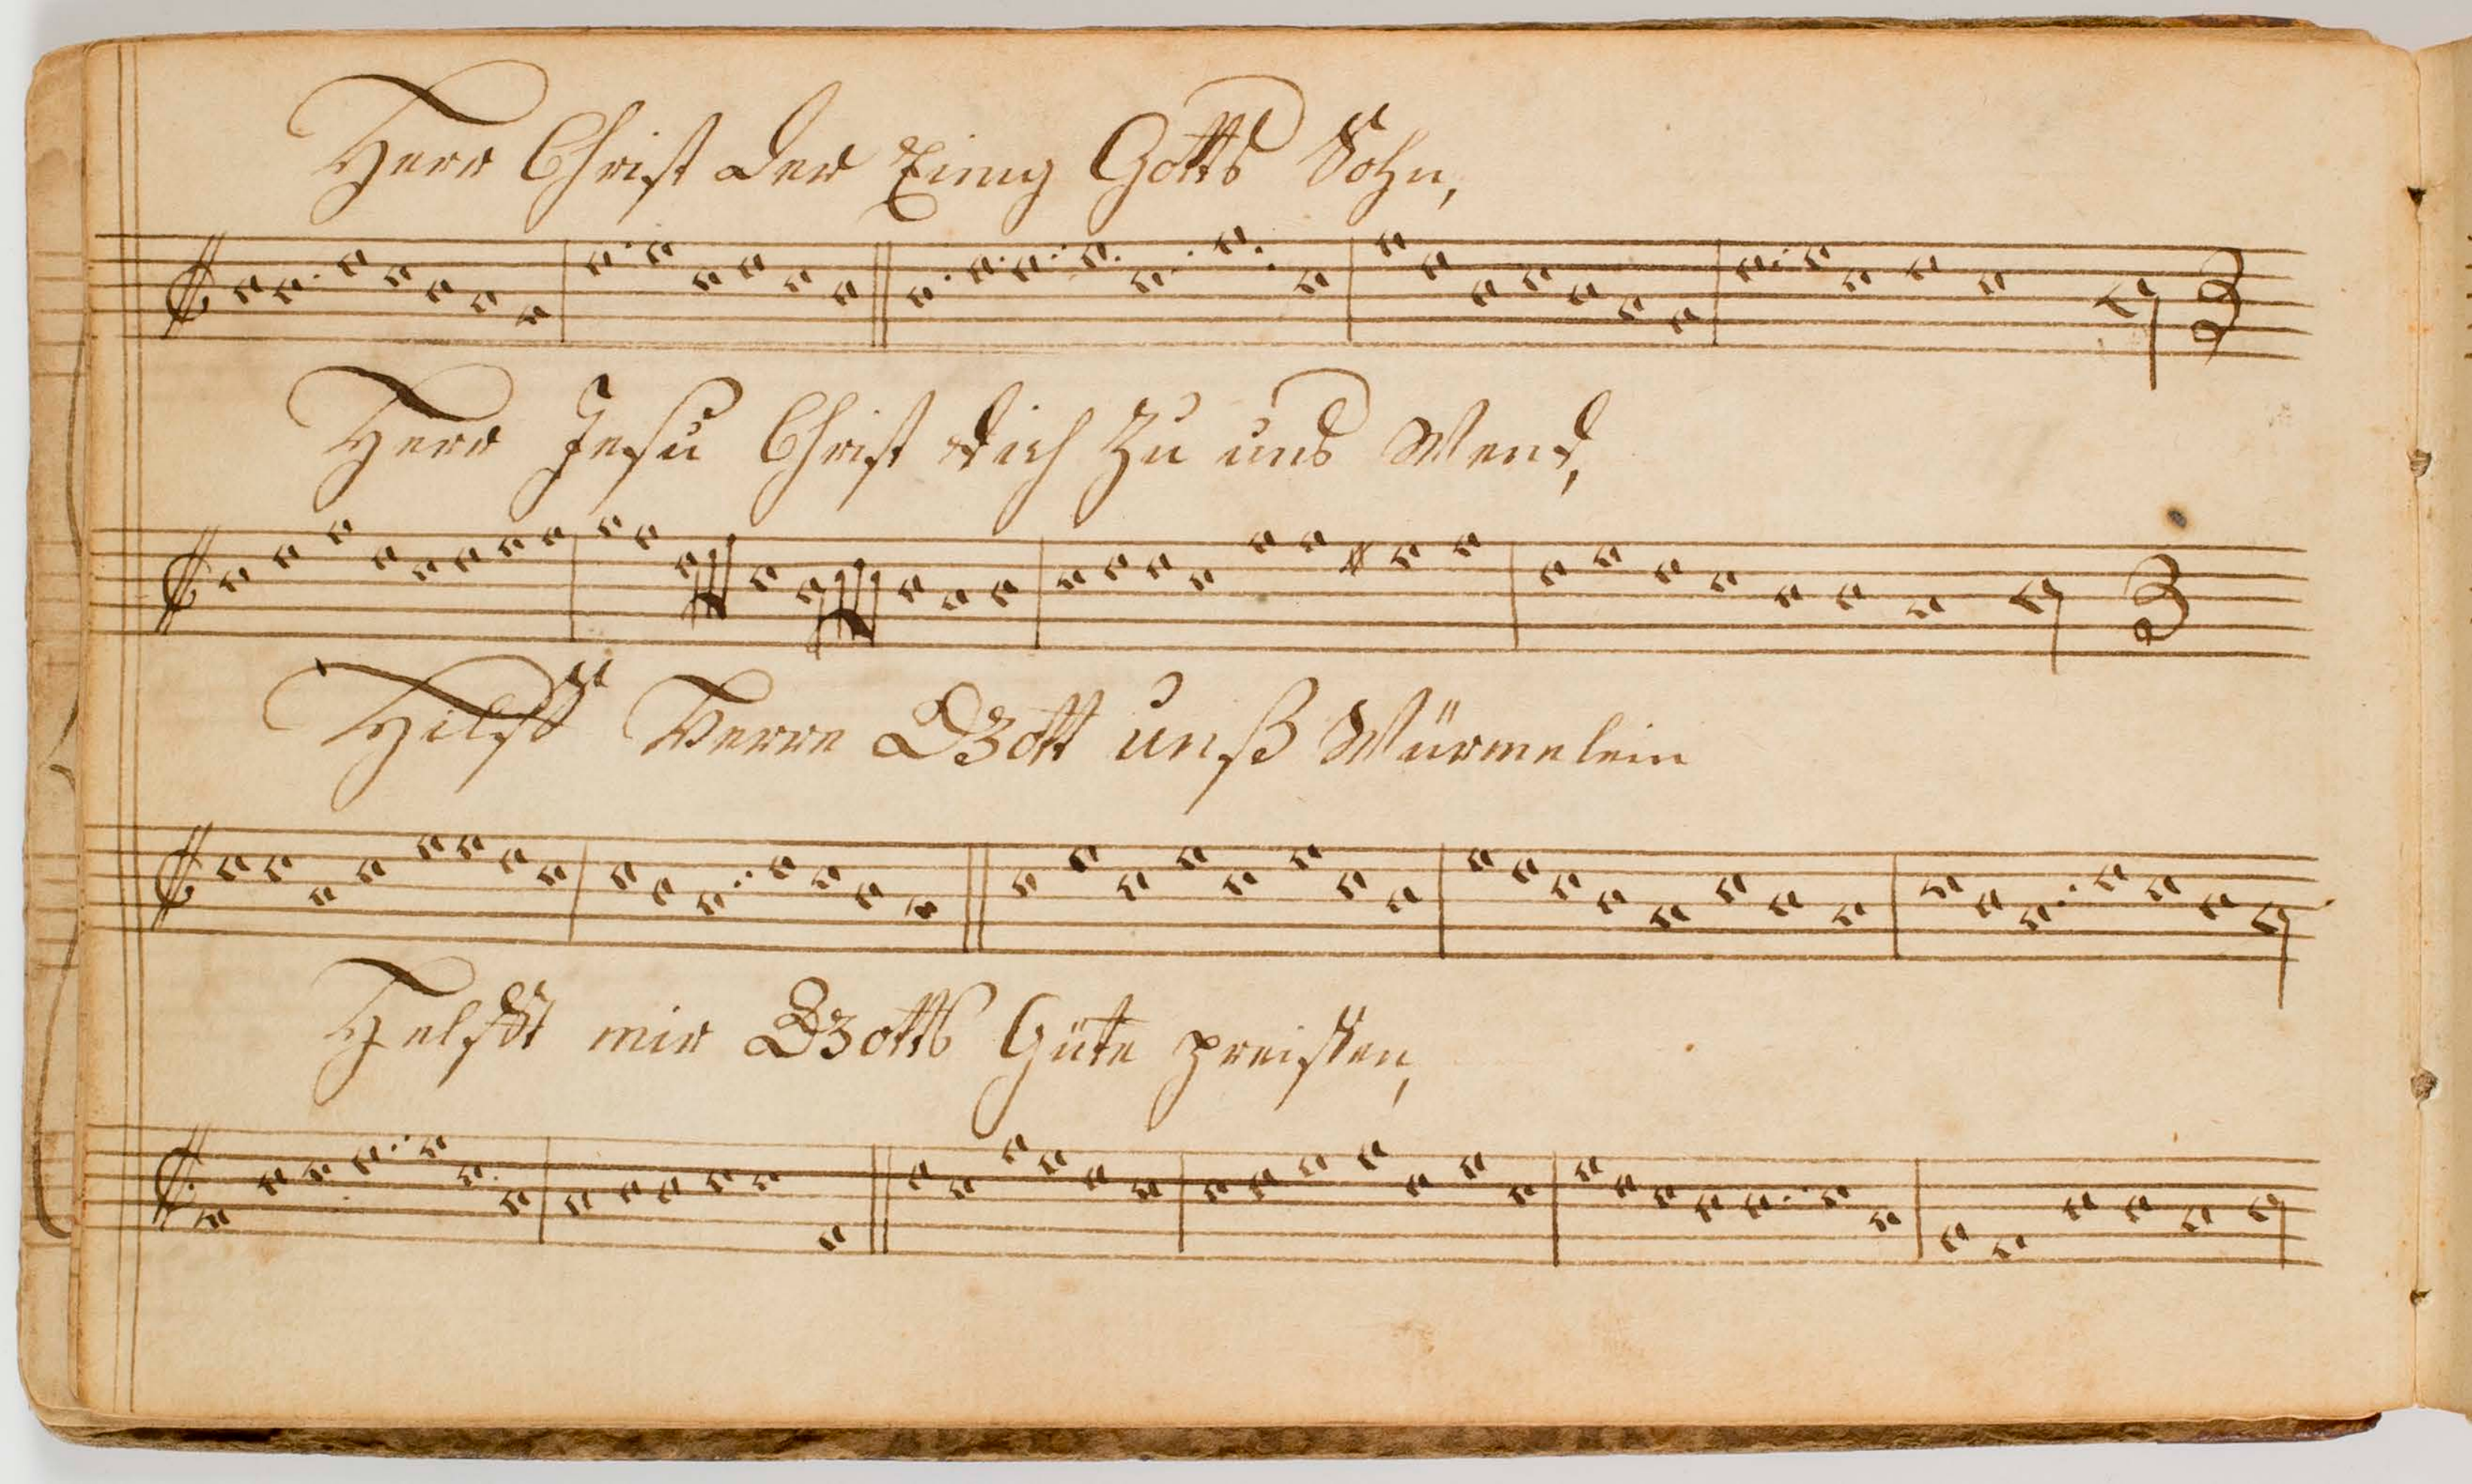 Herr Christ der Einig Gotts Sohn,
Herr Jesu Christ dich Zu uns Wend,
Hilff Herre Gott unß Würmelein
Helfft mir Gotts Güte preissen,